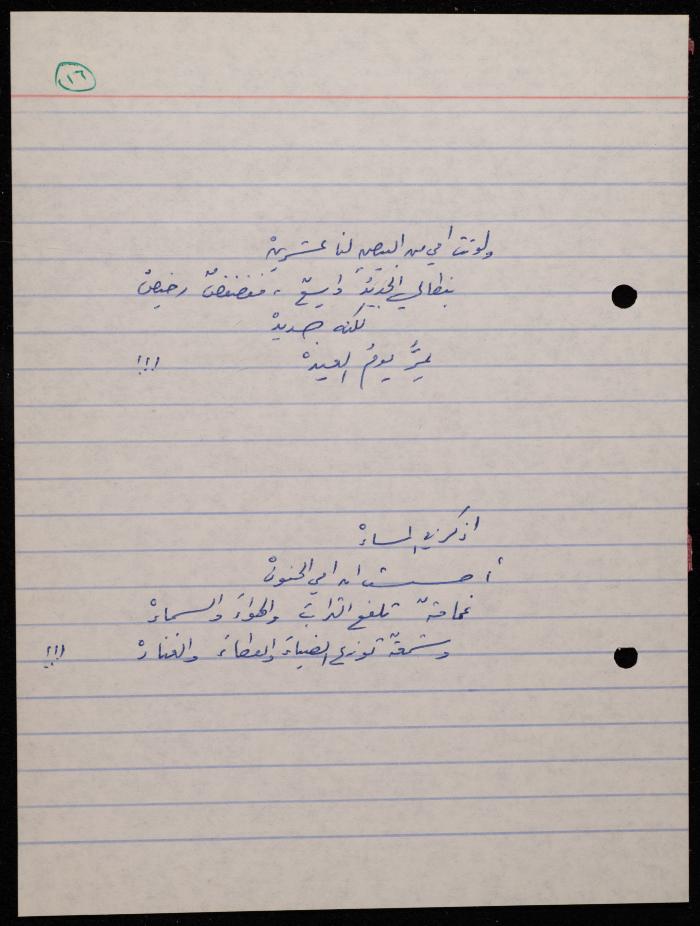 ١٦
ولوّنت امي من البيض لنا عشرينْ
بنطالي الجديدُ واسعٌ ، فضفضٌ رخيصْ
لكنه جديدْ
يمرُّ يومُ العيدْ !!!
اذكر في المساءْ
أحسست ان امي الحنونْ
غمامةٌ تلفع الترابَ والهواءَ والسماءْ
وشمعةٌ توزع الضياءَ والعطاءَ والغناءْ !!!